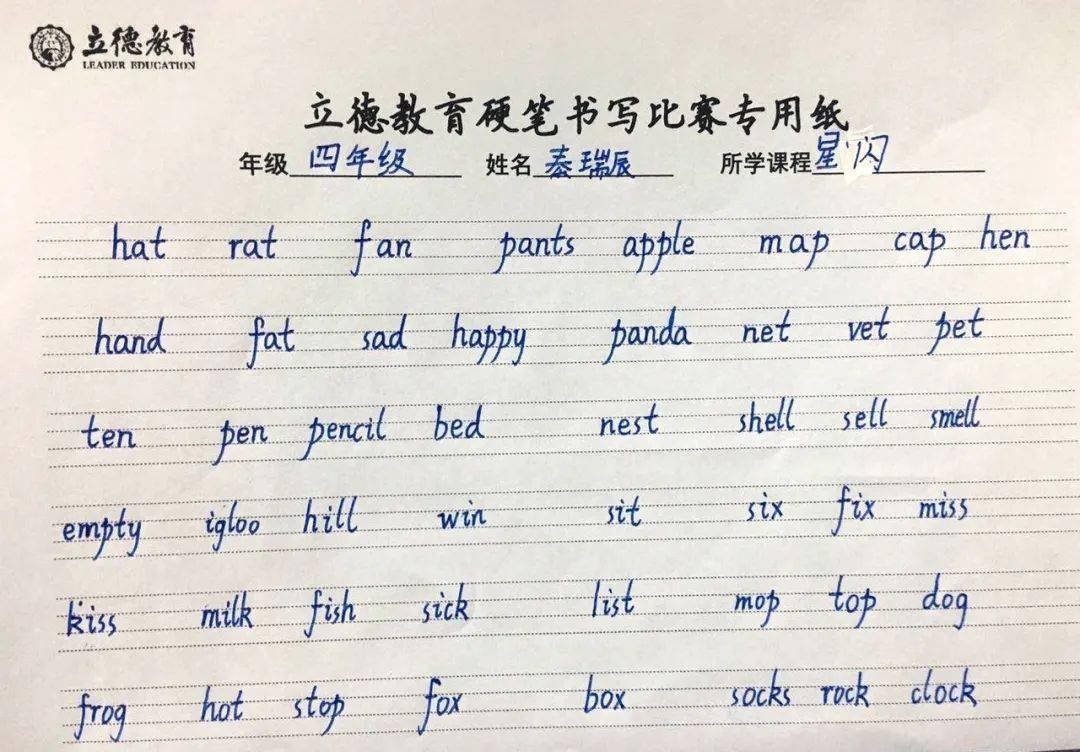 立德教育
LEADER EDUCATION
立德教育硬笔书写比赛专用纸
年级 四年级 姓名 秦瑞辰 所学课程 星闪
hat rat fan pants apple map cap hen
hand fat sad happy panda net vet pet
ten pen pencil bed nest shell sell smell
empty igloo hill win sit six fix miss
kiss milk fish sick list mop top dog
frog hot stop fox box socks rock clock